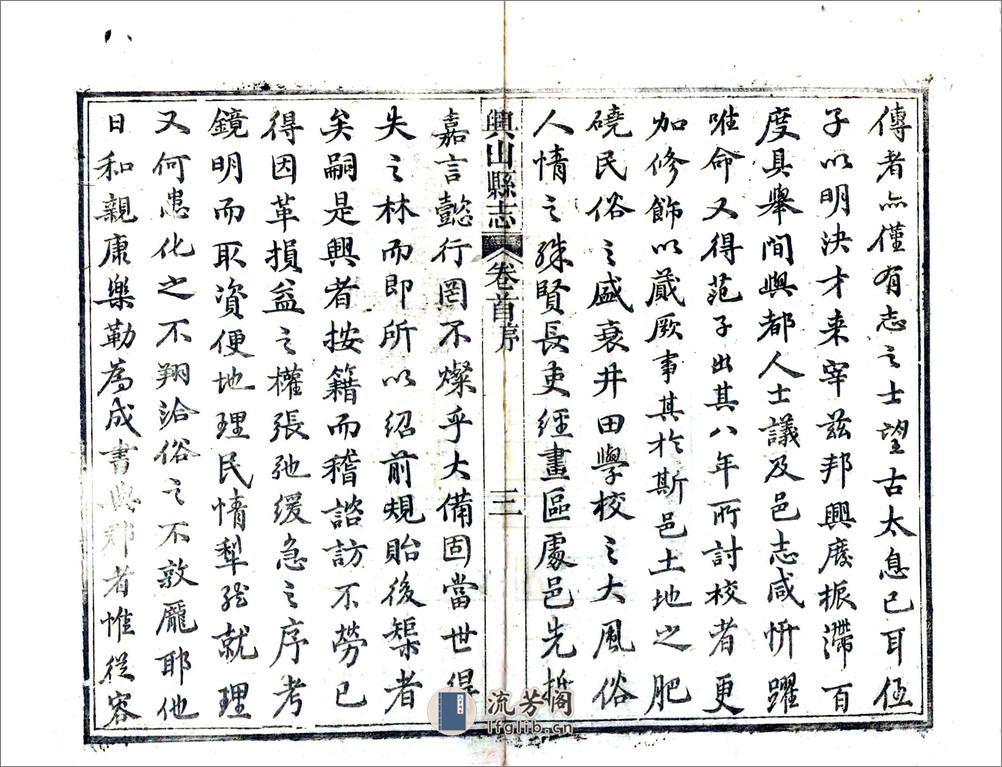 傳者亦僅有志之士望古太息已耳伍
子以明決才来宰兹邦興廢振滯百
度具舉間與都人士議及邑志咸忻躍
唯命又得范子出其八年所討校者更
加修飾以蕆厥事其於斯邑土地之肥
磽民俗之盛衰井田學校之大風俗
人情之殊賢長吏經畫區處邑先哲
興山縣志
卷首序
三
嘉言懿行罔不燦乎大備固當世得
失之林而即所以紹前規貽後榘者
矣嗣是興者按籍而稽諮訪不勞已
得因革損益之權張弛緩急之序考
鏡明而取資便地理民情犁然就理
又何患化之不翔洽俗之不敦龐耶他
日和親康樂勒為成書典郡者惟從容
流芳阁
lfglib.cn